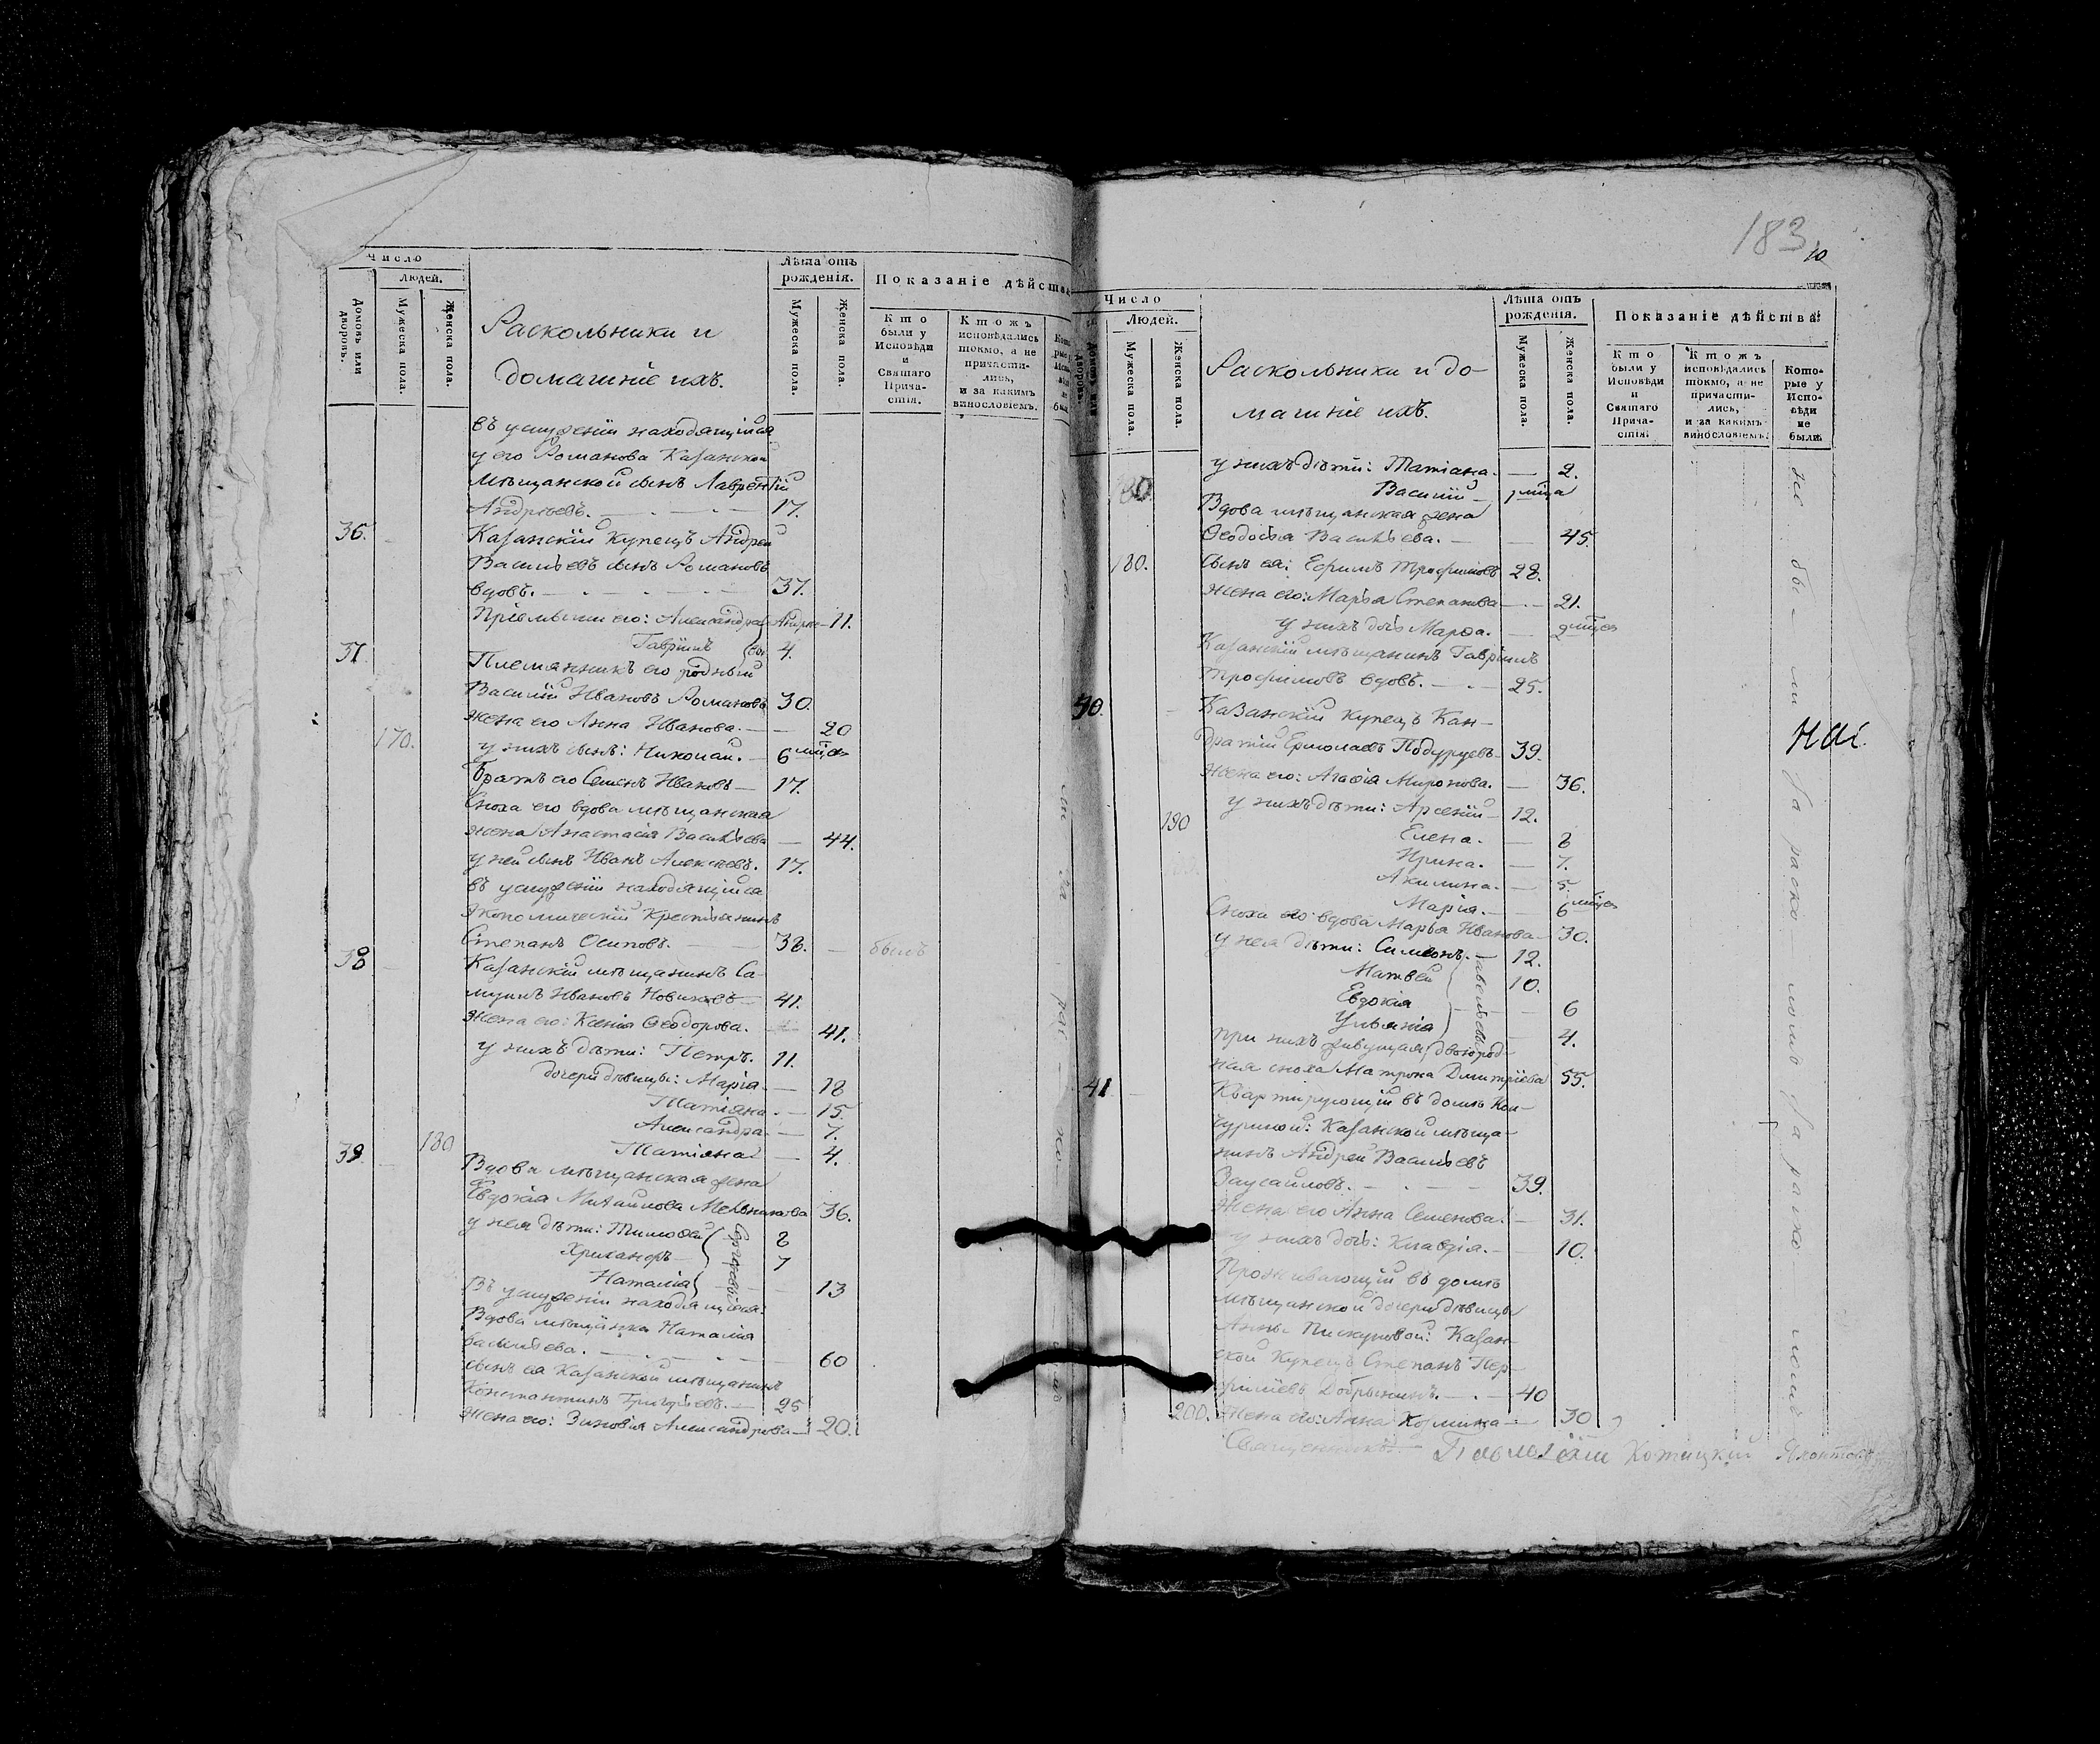 Число
Людей.
Домовъ или дворовъ.
Мужеска пола.
Женска пола.
Раскольники и
домашніе ихъ.
Лѣта отъ рожденія.
Мужеска пола.
Женска пола.
Показаніе дѣйства
Кто были у Исповѣди и Святаго Причастія.
Ктожъ исповѣдались токмо, а не причастились, и за какимъ винословіемъ.
въ услуженіи находящійся
у его Романова Казанской
Мѣщанской сынъ Лаврентій
Андреевъ. 17.
36. Казанскій Купецъ Андрей
Васильевъ сынъ Романовъ
вдовъ. 37.
Пріемыши его: Александра 11.
Гавріилъ 4.
37. Племянникъ его родный
Василій Ивановъ Романовъ 30.
жена его Анна Иванова. 20
170. у нихъ сынъ: Николай. 6 мцов
Братъ его Семенъ Ивановъ 17.
Сноха его вдова мѣщанская
жена Анастасія Васильева 44.
у ней сынъ Иванъ Алексѣевъ. 17.
въ услуженіи находящійся
экономическій Крестьянинъ
Степанъ Осиповъ. 38. былъ
38 Казанскій мѣщанинъ Са-
муилъ Ивановъ Новиковъ 41.
Жена его: Ксенія Ѳеодорова. 41.
у нихъ дѣти: Петръ. 11.
дочери дѣвицы: Марія 18
Татіяна. 15.
Александра. 7.
39. 180 Татіяна 4.
Вдова мѣщанская жена
Евдокія Михайлова Мельникова 36.
у нея дѣти: Тимоѳей 8
7
Наталія 13
Въ услуженіи находящіеся:
Вдова мѣщанка Наталія
Васильева. 60
сынъ ея Казанской мѣщанинъ
Константинъ Григорьевъ. 25
Жена его: Зиновія Александрова 20.
183
10
Число
Людей.
Мужеска пола.
Женска пола.
Раскольники и до-
машніе ихъ.
Лѣта отъ рожденія.
Мужеска пола.
Женска пола.
Показаніе дѣйства:
Кто были у Исповѣди и Святаго Причастія:
Ктожъ исповѣдались токмо, а не причастились, и за какимъ винословіемъ:
Которые у Исповѣди не были:
у нихъ дѣти: Татіана. 2.
Василій 1 мца
Вдова мѣщанская жена
Ѳеодосья Васильева. 45.
180. Сынъ ея: Ефимъ Трофимовъ 28.
Жена его: Марья Степанова 21.
у нихъ дочь Марѳа. 9 мцов
Казанскій мѣщанинъ Гавріилъ
Трофимовъ вдовъ. 25.
40. Казанскій купецъ Кон-
дратій Ермолаевъ Подуруевъ 39.
Жена его: Агаѳія Миронова. 36.
у нихъ дѣти: Арсеній 12.
190 Елена. 8
Ирина. 7.
Акилина. 5.
Марія. 6 мцов
Сноха его вдова Марья Иванова 30.
у нея дѣти: Симеонъ. 12.
Матвей 10.
Евдокія 6
Ульянія 4.
при нихъ живущая двоюрод-
ная сноха Матрона Дмитріева 55.
41 Квартирующій въ домѣ Кон-
чуриной: Казанской мѣща-
нинъ Андрей Васильевъ
Заусайловъ. 39.
Жена его Анна Семенова. 31.
у нихъ дочь: Клавдія. 10.
Проживающій въ домѣ
мѣщанской дочери дѣвицы
Анны Пискуновой: Казан-
ской Купецъ Степанъ
Добрынинъ. 40
200. Жена его: Анна Козмина 30
не бы- ли за раско- ломъ
Священникъ